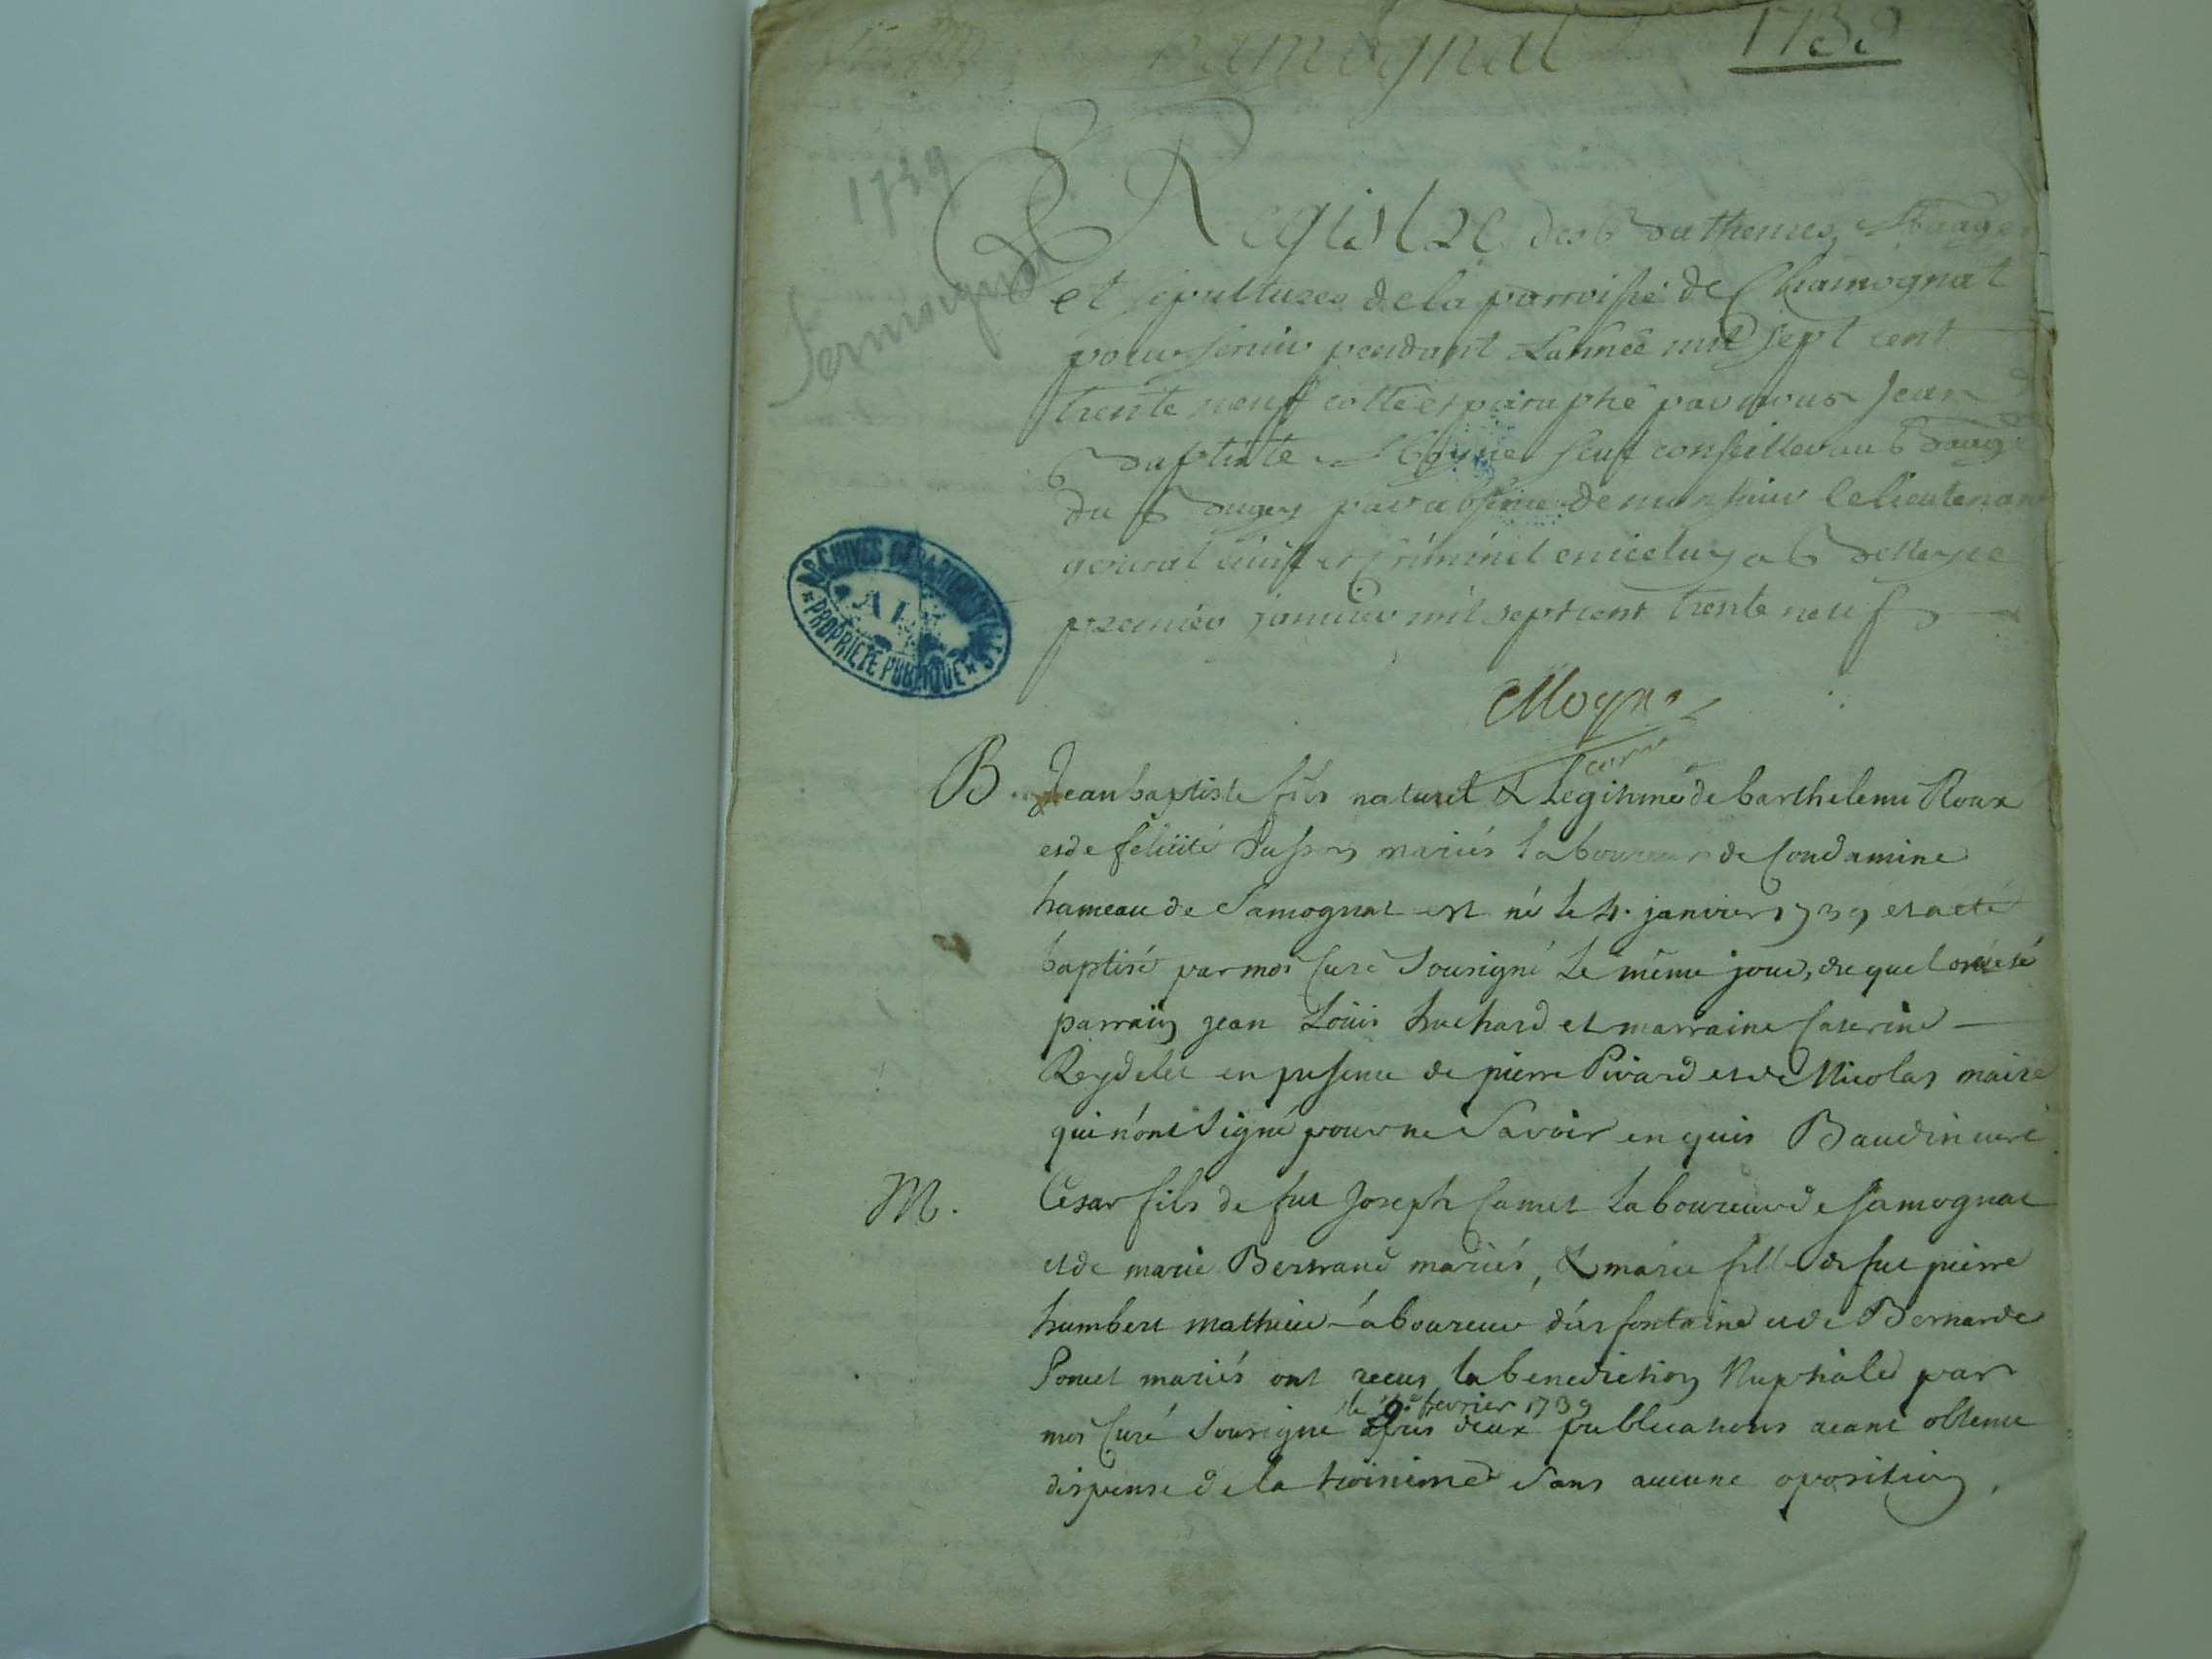 Samognat 1739
1739
Samognat
Registre des Bathemes Mariages
et sepultures de la parroisse de Chamognat
pour servir pendant L'année mil sept cent
trente neuf cotté et paraphé par nous Jean
Baptiste Moyne seul conseiller au Baag
du Bugey par absence de monsieur le lieutenant
general civil et Criminel en iceluy a Belley ce
premier janvier mil sept cent trente neuf
Moyne
B. Jean baptiste fils naturel & Legitime de barthelemi Roux
et de felicité mariés laboureur de Condamine
hameau de Samognat est né le 4. janvier 1739 et a eté
baptisé par moi Curé Sousigné le même jour, du quel
parrain jean Loüis huchard et marraine Caterine
Reydelet en presence de pierre Pivard et de Nicolas maire
qui n'ont signé pour ne Savoir enquis Baudin curé
M. César fils de fut Joseph Camet Laboureur de Samognat
et de marie Bertrand mariés, & marie fille de fut pierre
humbert mathieu laboureur d'isfontaine et de Bernarde
Poncet mariés ont recus la benediction Nuptiale par
le 9e. fevrier 1739
moi Curé Sousigné apres deux publications aiant obtenu
dispense de la troisieme Sans aucune oposition,
ARCHIVES DÉPARTEMENTALES
AIN
PROPRIÉTÉ PUBLIQUE